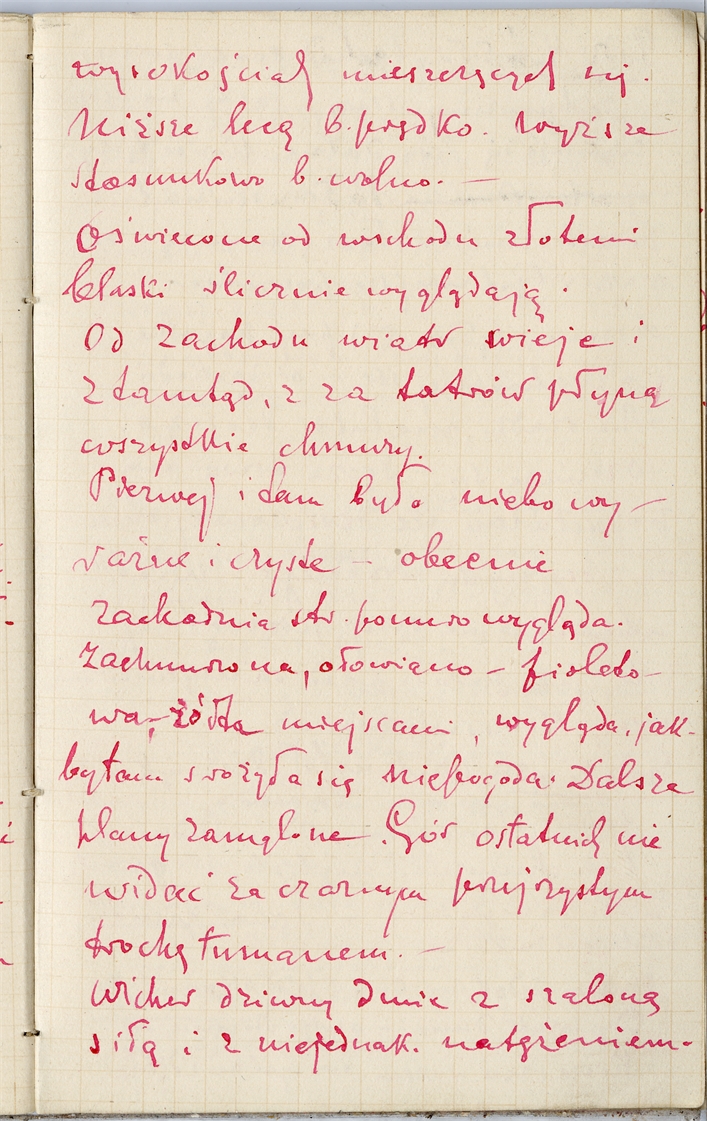 wysokościach mieszczących się.
Niższe lecą b. prędko. Wyższe
stosunkowo b. wolno. —
Oświecone od wschodu złotemi
blaski ślicznie wyglądają.
Od zachodu wiatr wieje i
ztamtąd, z za tatrów płyną
wszystkie chmury.
Pierwej i tam było niebo wy-
raźne i czyste – obecnie
zachodnia str. ponuro wygląda.
Zachmurzona, ołowiano – fioleto-
wa, żółta miejscami, wygląda, jak-
by tam srożyła się niepogoda. Dalsze
plany zamglone. Gór ostatnich nie
widać za czarnym przejrzystym
trochę tumanem. —
Wicher dziwny dmie z szaloną
siłą i z niejednak. natężeniem.